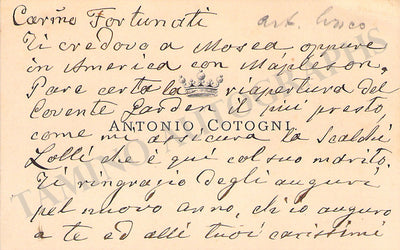 Carino Fortunati
Art. lirico
Ti credevo a Mosca, oppure
in America con Mapleson.
Pare certa la riapertura del
Covente Garden il più presto,
ANTONIO COTOGNI
come mi assicura la Scalchi
Lolli che è quì col suo marito.
Ti ringrazio degli auguri
pel nuovo anno, ch'io auguro
a te ed alli tuoi carissimi
TAMINO AUTOGRAPHS